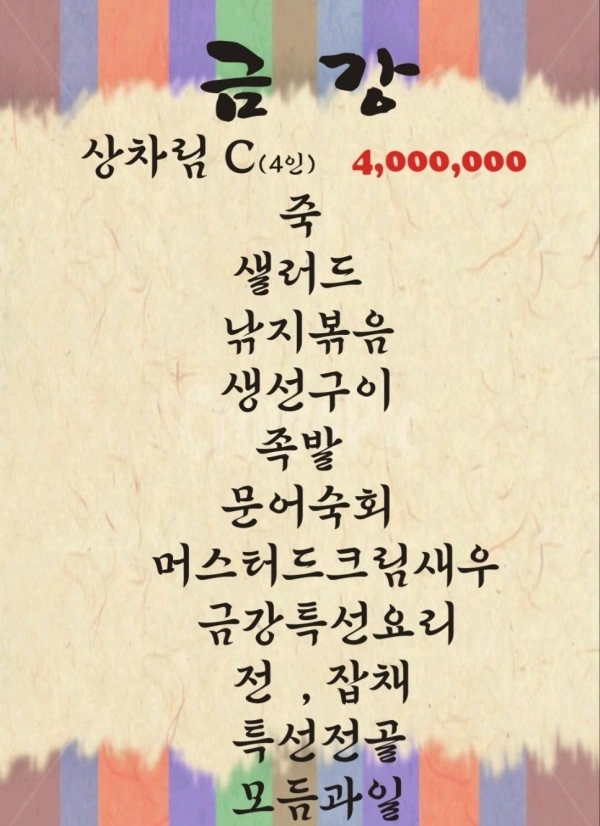 금 강
상차림 C(4인) 4,000,000
죽
샐러드
낚지볶음
생선구이
족발
문어숙회
머스터드크림새우
금강특선요리
전 , 잡채
특선전골
모듬과일